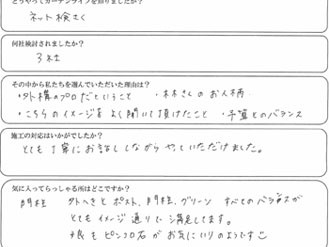 どうやってガーデンライフを知りましたか?
ネット検さく
何社検討されましたか?
3社
その中から私たちを選んでいただいた理由は?
・外構のプロだということ ・木木さんのお人柄
・こちらのイメージをよく聞いて頂けたこと ・予算とのバランス
施工の対応はいかがでしたか?
とても丁寧にお話ししながらやっていただけました。
気に入ってらっしゃる所はどこですか?
門柱 外へきとポスト、門柱、グリーン すべてのバランスが
とてもイメージ通りで満足してます。
も ピンコロ石が お気にいりのようです